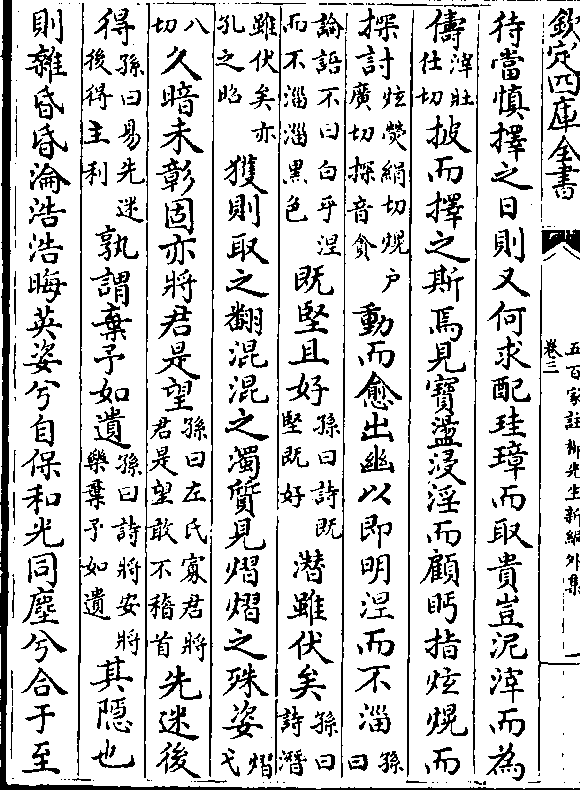 欽定四庫全書
五百家註柳先生新編外集
卷三
待當慎擇之日則又何求配珪璋而取貴豈泥滓而為
儔滓壯仕切披而擇之斯焉見寶溘浸淫而顧眄指炫熀而
探討炫熒絹切熀户廣切探音貪動而愈出幽以即明涅而不淄孫曰
論語不曰白乎涅而不淄淄黒色既堅且好孫曰詩既堅既好潜雖伏矣孫曰詩潛
雖伏矣亦孔之昭獲則取之翻混混之濁質見熠熠之殊姿熠弋
八切久暗未彰固亦將君是望孫曰左氏寡君將君是望敢不稽首先迷後
得孫曰易先迷後得主利孰謂棄予如遺孫曰詩將安將樂棄予如遺其隠也
則雜昏昏淪浩浩晦英姿兮自保和光同塵兮合于至